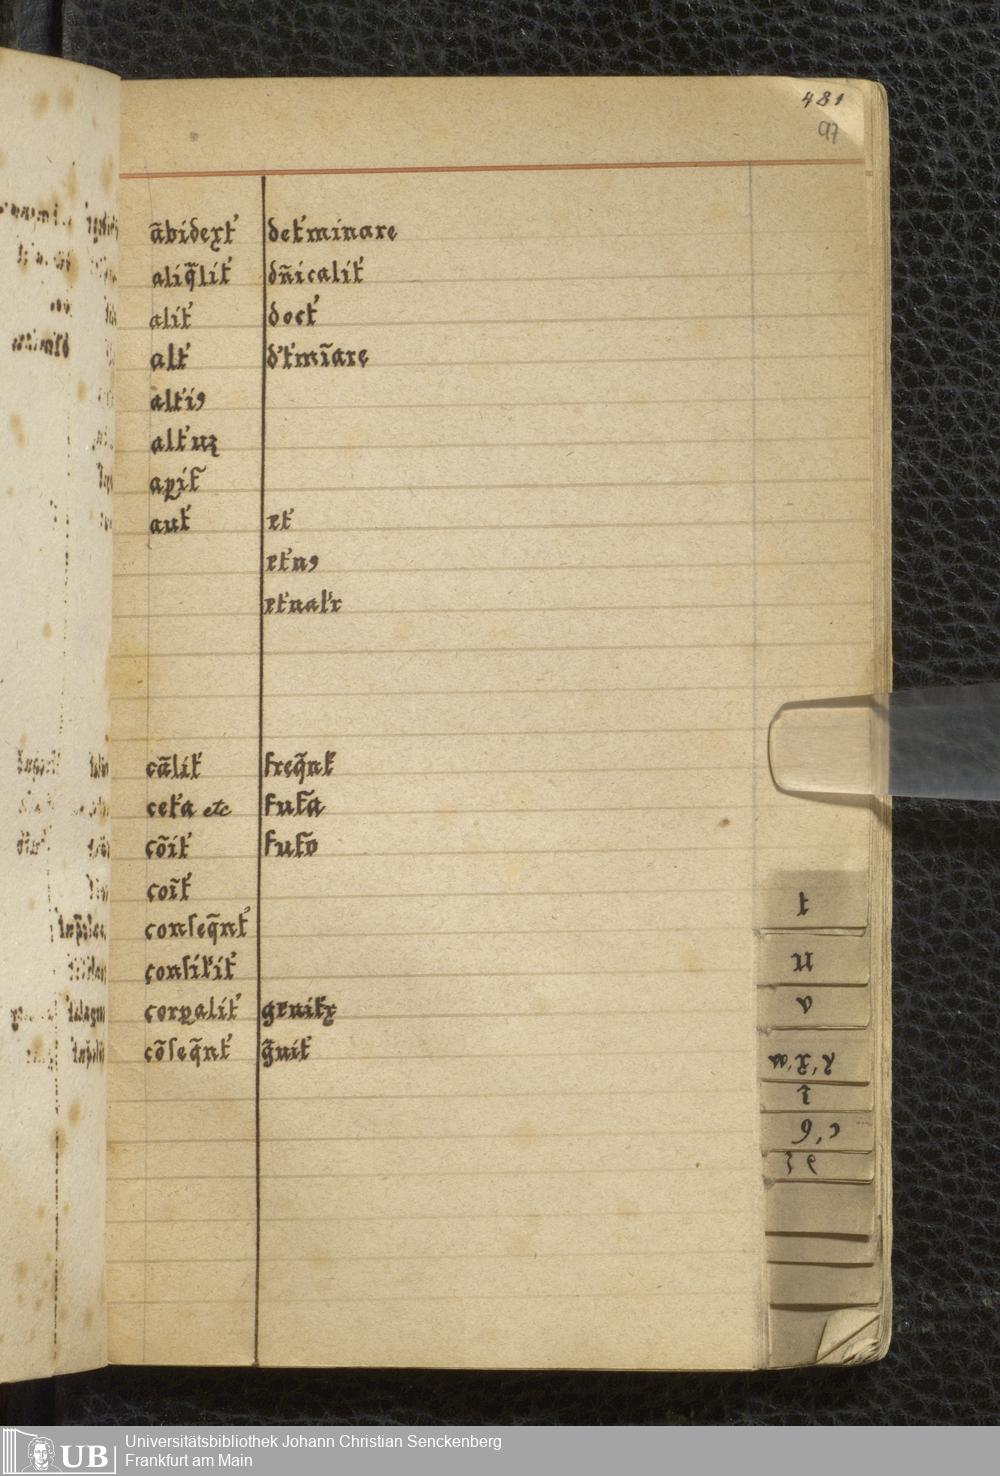 481
97
ãbidext᾿ det᾿minare
aliq̃lit᾿ dñicalit᾿
alit᾿ doct᾿
alt᾿ d᾿t᾿mĩare
alt᾿i9
alt᾿uꝝ
aꝑit᾿
aut᾿ et᾿
et᾿n9
et᾿nal᾿r
cãlit᾿ freq̃nt᾿
cet᾿a etc fut᾿a
cõit᾿ fut᾿o
coĩt᾿
conſeq̃nt᾿
corꝑalit᾿
cõſeq̃nt᾿ g̃nit᾿
t
u
a
i
c, 6
UB Universitätsbibliothek Johann Christian Senckenberg
Frankfurt am Main